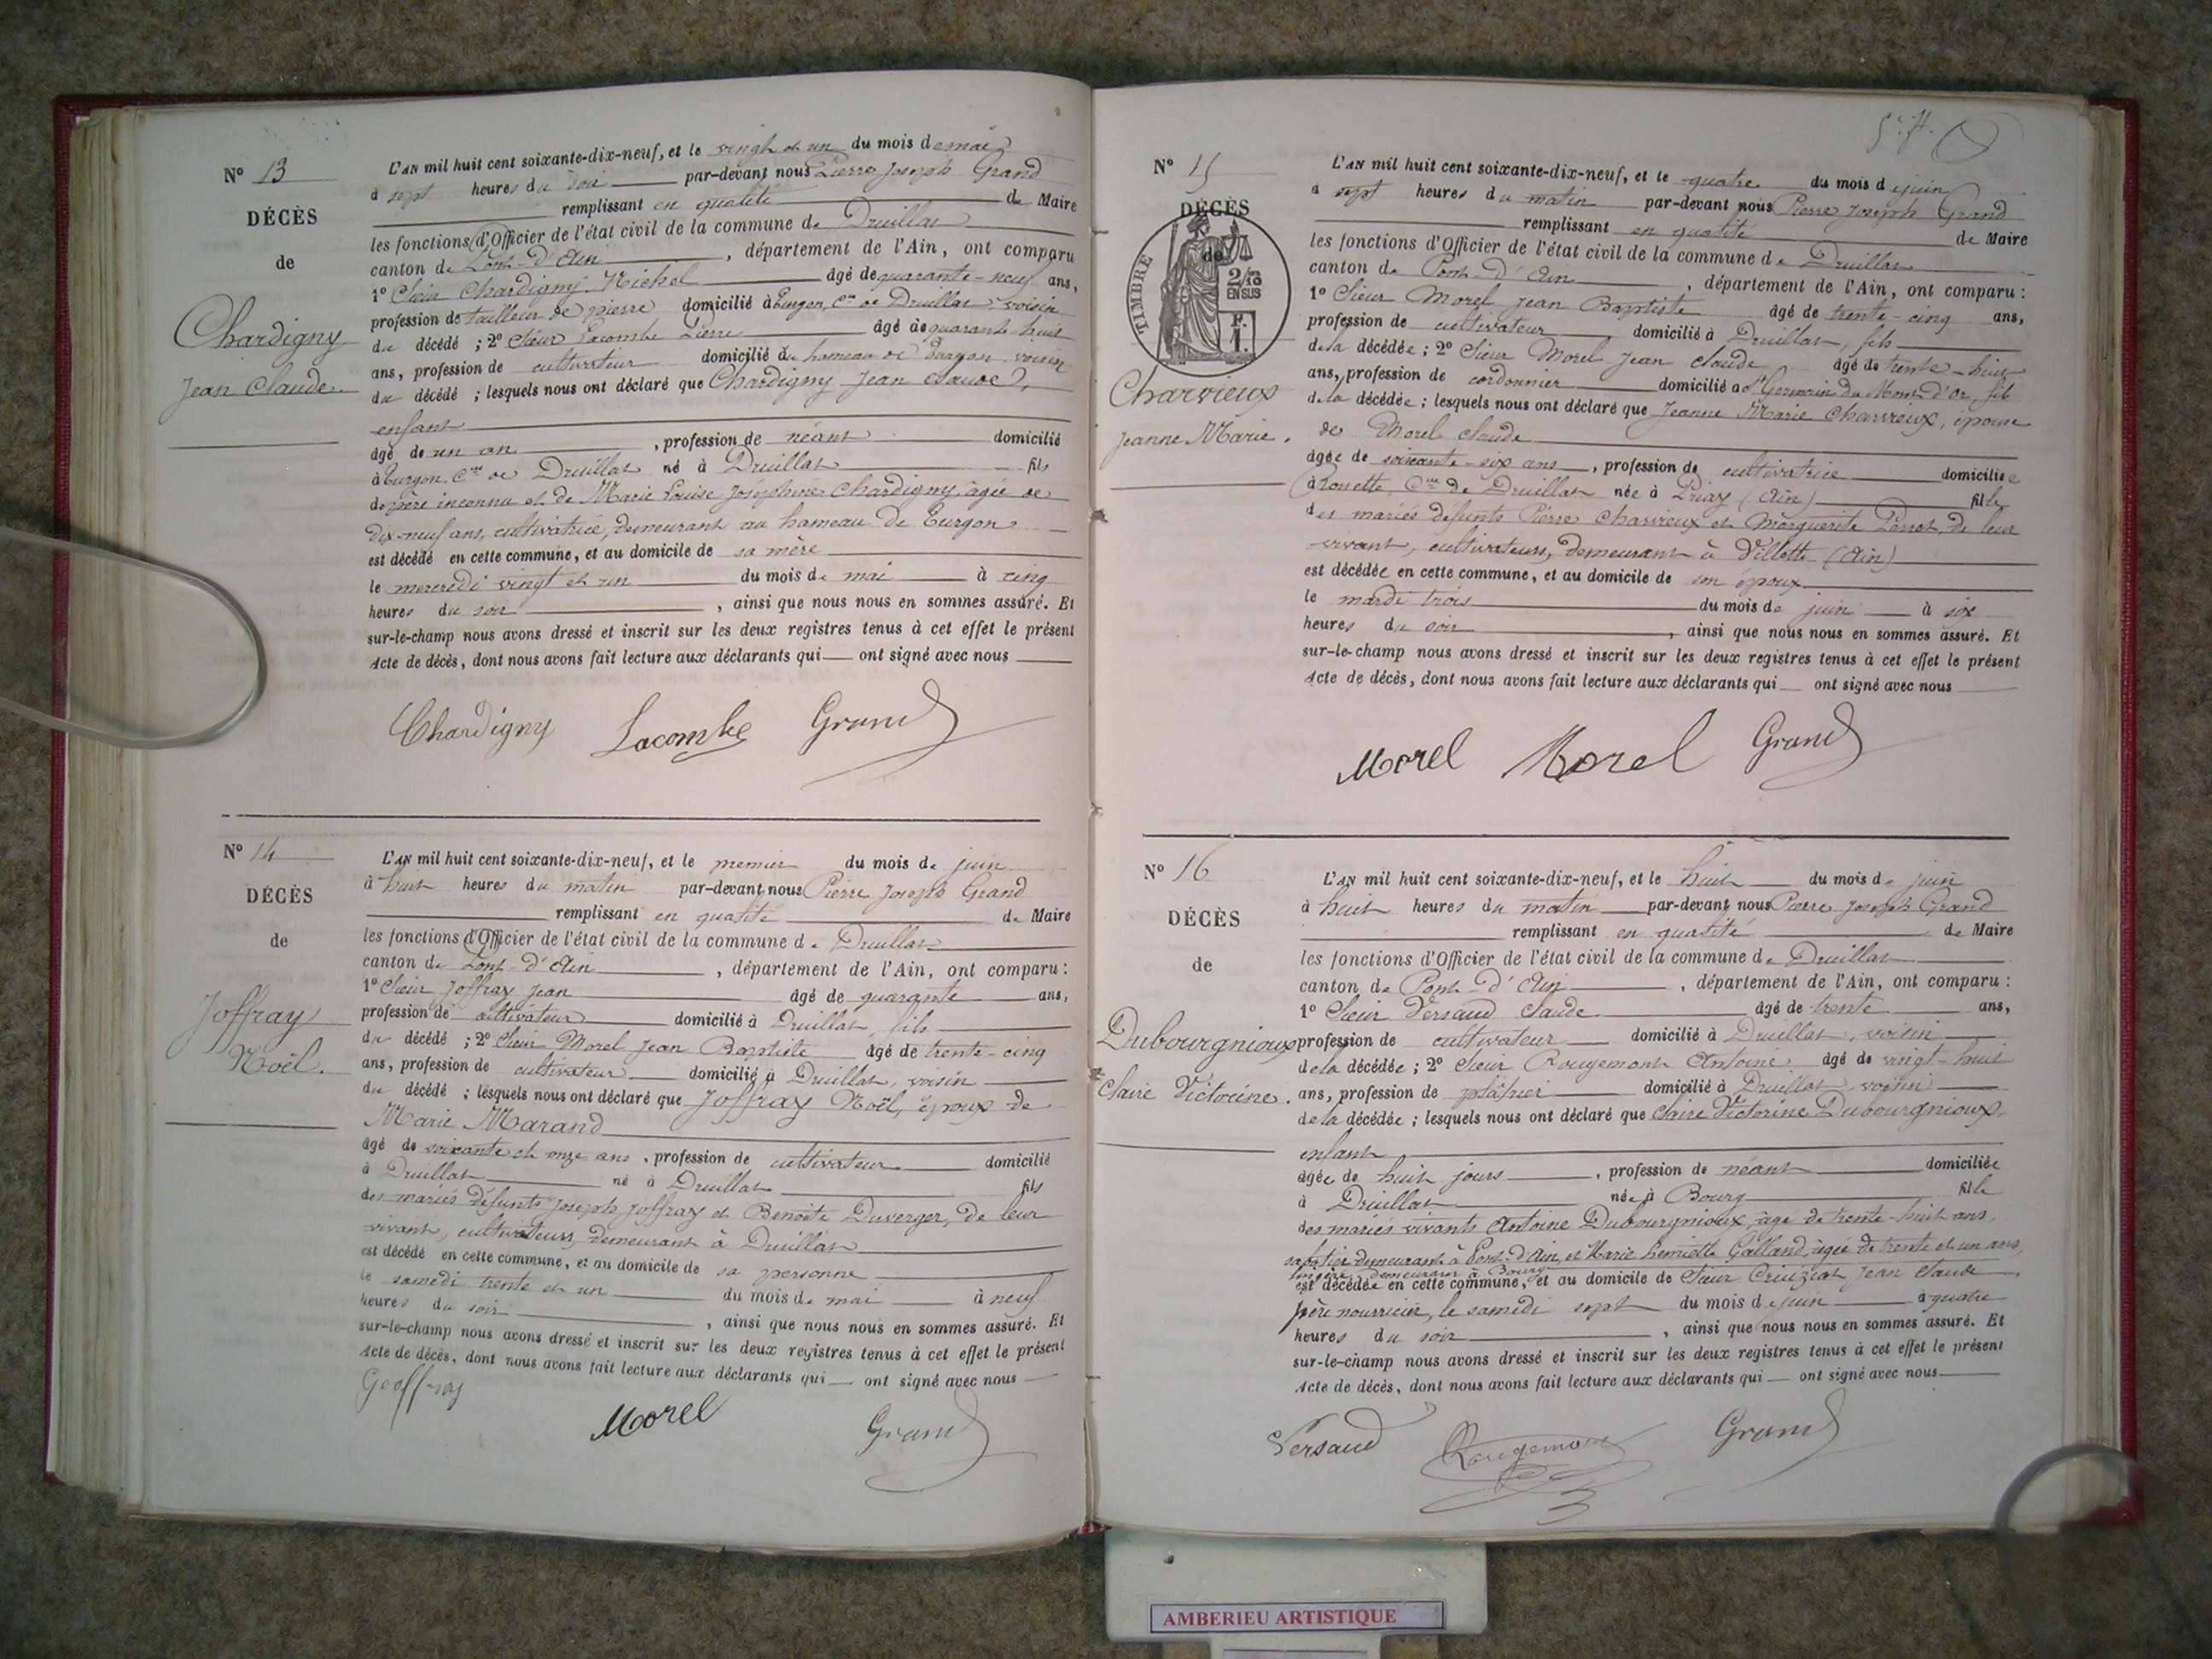 N° 13
DÉCÈS
de
Chardigny
Jean Claude.
L'AN mil huit cent soixante-dix-neuf, et le vingt et un du mois de mai
à sept heures du soir par-devant nous Pierre Joseph Grand
remplissant en qualité de Maire
les fonctions d'Officier de l'état civil de la commune de Druillat
canton de Pont-d'Ain, département de l'Ain, ont comparu
1° Sieur Chardigny Michel âgé de quarante-neuf ans,
profession de tailleur de pierre domicilié à Turgon, Cne de Druillat, voisin
du décédé ; 2° Sieur Lacombe Pierre âgé de quarante huit
ans, profession de cultivateur domicilié au hameau de Turgon voisin
du décédé ; lesquels nous ont déclaré que Chardigny Jean Claude,
enfant
âgé de un an, profession de néant domicilié
à Turgon, Cne de Druillat né à Druillat fils
de père inconnu et de Marie Louise Joséphine Chardigny, âgée de
dix-neuf ans, cultivatrice, demeurant au hameau de Turgon
est décédé en cette commune, et au domicile de sa mère
le mercredi vingt et un du mois de mai à cinq
heures du soir, ainsi que nous nous en sommes assuré. Et
sur-le-champ nous avons dressé et inscrit sur les deux registres tenus à cet effet le présent
Acte de décès, dont nous avons fait lecture aux déclarants qui ont signé avec nous
Chardigny Lacombe Grand
N° 14
DÉCÈS
de
Joffray
Noël.
L'AN mil huit cent soixante-dix-neuf, et le premier du mois de juin
à huit heures du matin par-devant nous Pierre Joseph Grand
remplissant en qualité de Maire
les fonctions d'Officier de l'état civil de la commune de Druillat
canton de Pont-d'Ain, département de l'Ain, ont comparu :
1° Sieur Joffray Jean âgé de quarante ans,
profession de cultivateur domicilié à Druillat, fils
du décédé ; 2° Sieur Morel Jean Baptiste âgé de trente-cinq
ans, profession de cultivateur domicilié à Druillat, voisin
du décédé ; lesquels nous ont déclaré que Joffray Noël, époux de
Marie Marand
âgé de soixante et onze ans, profession de cultivateur domicilié
à Druillat né à Druillat fils
des mariés défunts Joseph Joffray et Benoite Duverger, de leur
vivant, cultivateurs, demeurant à Druillat
est décédé en cette commune, et au domicile de sa personne
le samedi trente et un du mois de mai à neuf
heures du soir, ainsi que nous nous en sommes assuré. Et
sur-le-champ nous avons dressé et inscrit sur les deux registres tenus à cet effet le présent
Acte de décès, dont nous avons fait lecture aux déclarants qui ont signé avec nous
Geoffray
Morel Grand
N° 15
DÉCÈS
de
TIMBRE
2/10
EN SUS
F.
1.
Charvieux
Jeanne Marie.
L'AN mil huit cent soixante-dix-neuf, et le quatre du mois de juin
à sept heures du matin par-devant nous Pierre Joseph Grand
remplissant en qualité de Maire
les fonctions d'Officier de l'état civil de la commune de Druillat
canton de Pont-d'Ain, département de l'Ain, ont comparu :
1° Sieur Morel Jean Baptiste âgé de trente-cinq ans,
profession de cultivateur domicilié à Druillat, fils
de la décédée ; 2° Sieur Morel Jean Claude âgé de trente-huit
ans, profession de cordonnier domicilié à St Germain du Mont d'Or, fils
de la décédée ; lesquels nous ont déclaré que Jeanne Marie Charvieux, épouse
de Morel Claude
âgée de soixante-six ans, profession de cultivatrice domiciliée
à Cne de Druillat née à Priay (Ain) fille
des mariés défunts Pierre Charvieux et Marguerite Perret, de leur
vivant, cultivateurs, demeurant à Villette (Ain)
est décédée en cette commune, et au domicile de son époux
le mardi trois du mois de juin à six
heures du soir, ainsi que nous nous en sommes assuré. Et
sur-le-champ nous avons dressé et inscrit sur les deux registres tenus à cet effet le présent
Acte de décès, dont nous avons fait lecture aux déclarants qui ont signé avec nous
Morel Morel Grand
N° 16
DÉCÈS
de
Dubourgnioux
Claire Victorine.
L'AN mil huit cent soixante-dix-neuf, et le huit du mois de juin
à huit heures du matin par-devant nous Pierre Joseph Grand
remplissant en qualité de Maire
les fonctions d'Officier de l'état civil de la commune de Druillat
canton de Pont-d'Ain, département de l'Ain, ont comparu :
1° Sieur Versaud Claude âgé de trente ans,
profession de cultivateur domicilié à Druillat, voisin
de la décédée ; 2° Sieur Rougemont Antoine âgé de vingt-huit
ans, profession de plâtrier domicilié à Druillat, voisin
de la décédée ; lesquels nous ont déclaré que Claire Victorine Dubourgnioux,
enfant
âgée de huit jours, profession de néant domiciliée
à Druillat née à Bourg fille
des mariés vivants Antoine Dubourgnioux, âgé de trente-huit ans,
sabotier demeurant à Pont-d'Ain, et Marie Henriette Galland, âgée de trente et un ans,
demeurant à Bourg
est décédée en cette commune, et au domicile de Sieur Jean Claude
père nourricier, le samedi sept du mois de juin à quatre
heures du soir, ainsi que nous nous en sommes assuré. Et
sur-le-champ nous avons dressé et inscrit sur les deux registres tenus à cet effet le présent
Acte de décès, dont nous avons fait lecture aux déclarants qui ont signé avec nous
Versaud Rougemont Grand
AMBERIEU ARTISTIQUE